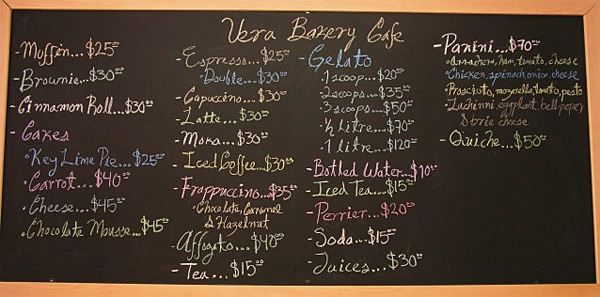 Vera Bakery Cafe
- Muffin...$25⁰⁰
- Brownie...$30⁰⁰
- Cinnamon Roll...$30⁰⁰
- Cakes
• Key Lime Pie...$25⁰⁰
• Carrot...$40⁰⁰
• Cheese...$45⁰⁰
• Chocolate Mousse...$45⁰⁰
- Espresso...$25⁰⁰
• Double...$30⁰⁰
- Capuccino...$30⁰⁰
- Latte...$30⁰⁰
- Moka...$30⁰⁰
- Iced Coffee...$30⁰⁰
- Frappuccino...$35⁰⁰
• Chocolate, Caramel
& Hazelnut
- Affogato...$40⁰⁰
- Tea...$15⁰⁰
- Gelato
• 1 scoop...$20⁰⁰
• 2 scoops...$35⁰⁰
• 3 scoops...$50⁰⁰
• ½ litre...$70⁰⁰
• 1 litre...$120⁰⁰
- Botled Water..$10⁰⁰
- Iced Tea...$15⁰⁰
- Perrier...$20⁰⁰
- Soda...$15⁰⁰
- Juices...$30⁰⁰
- Panini...$70⁰⁰
• Arrachera, ham, tomato, cheese
• Chicken, spinach, onion, cheese
• Prosciuto, mozzarella, tomato, pesto
• Zuchinni, eggplant, bell peper
& brie cheese
- Quiche...$50⁰⁰